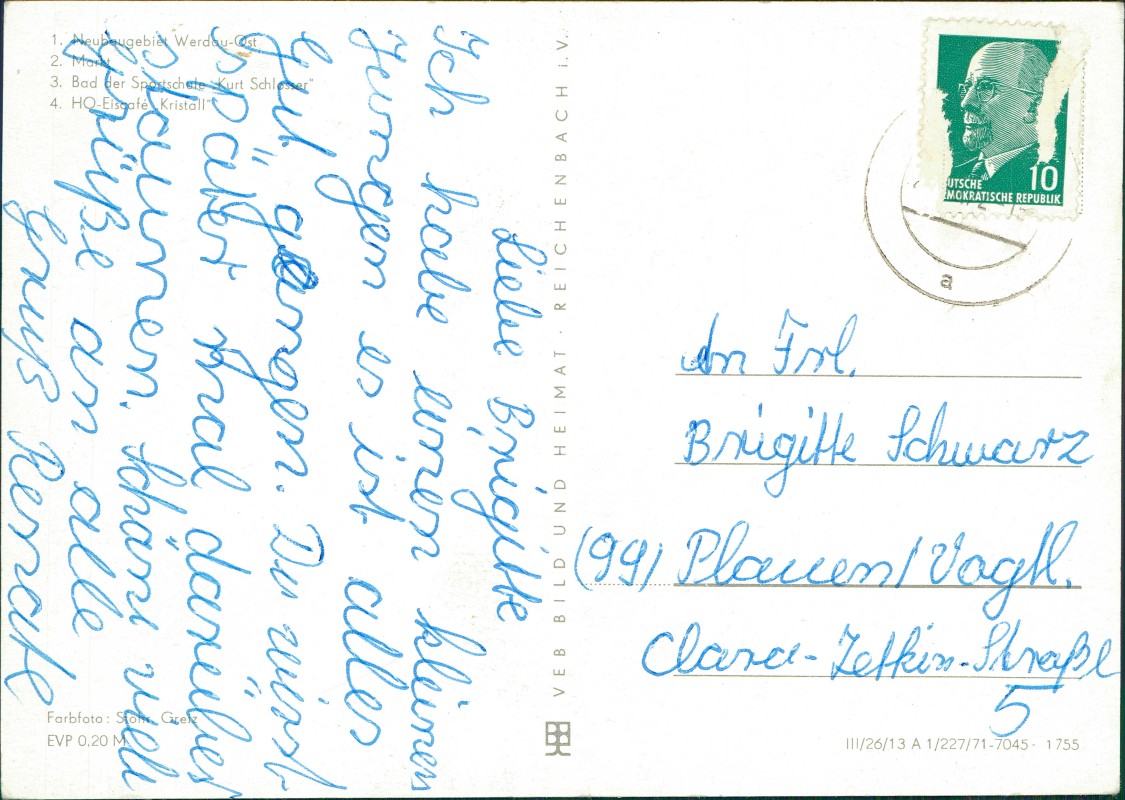 1. Neubaugebiet Werdau-Ost
2. Markt
3. Bad der Sportschule "Kurt Schlosser"
4. HO-Eiscafé "Kristall"
Liebe Brigitte
Ich habe einen kleinen
Jungen es ist alles
gut gegangen. Du wirst
später mal darüber
staunen. Schöne viele
Grüße an alle
Gruß Renate
Farbfoto: Stöhr, Greiz
EVP 0,20 M
VEB BILD UND HEIMAT · REICHENBACH i. V.
UTSCHE
MOKRATISCHE REPUBLIK
10
a
An Frl.
Brigitte Schwarz
(99) Plauen/Vogtl.
Clara-Zetkin-Straße
5
III/26/13 A 1/227/71-7045 · 1755